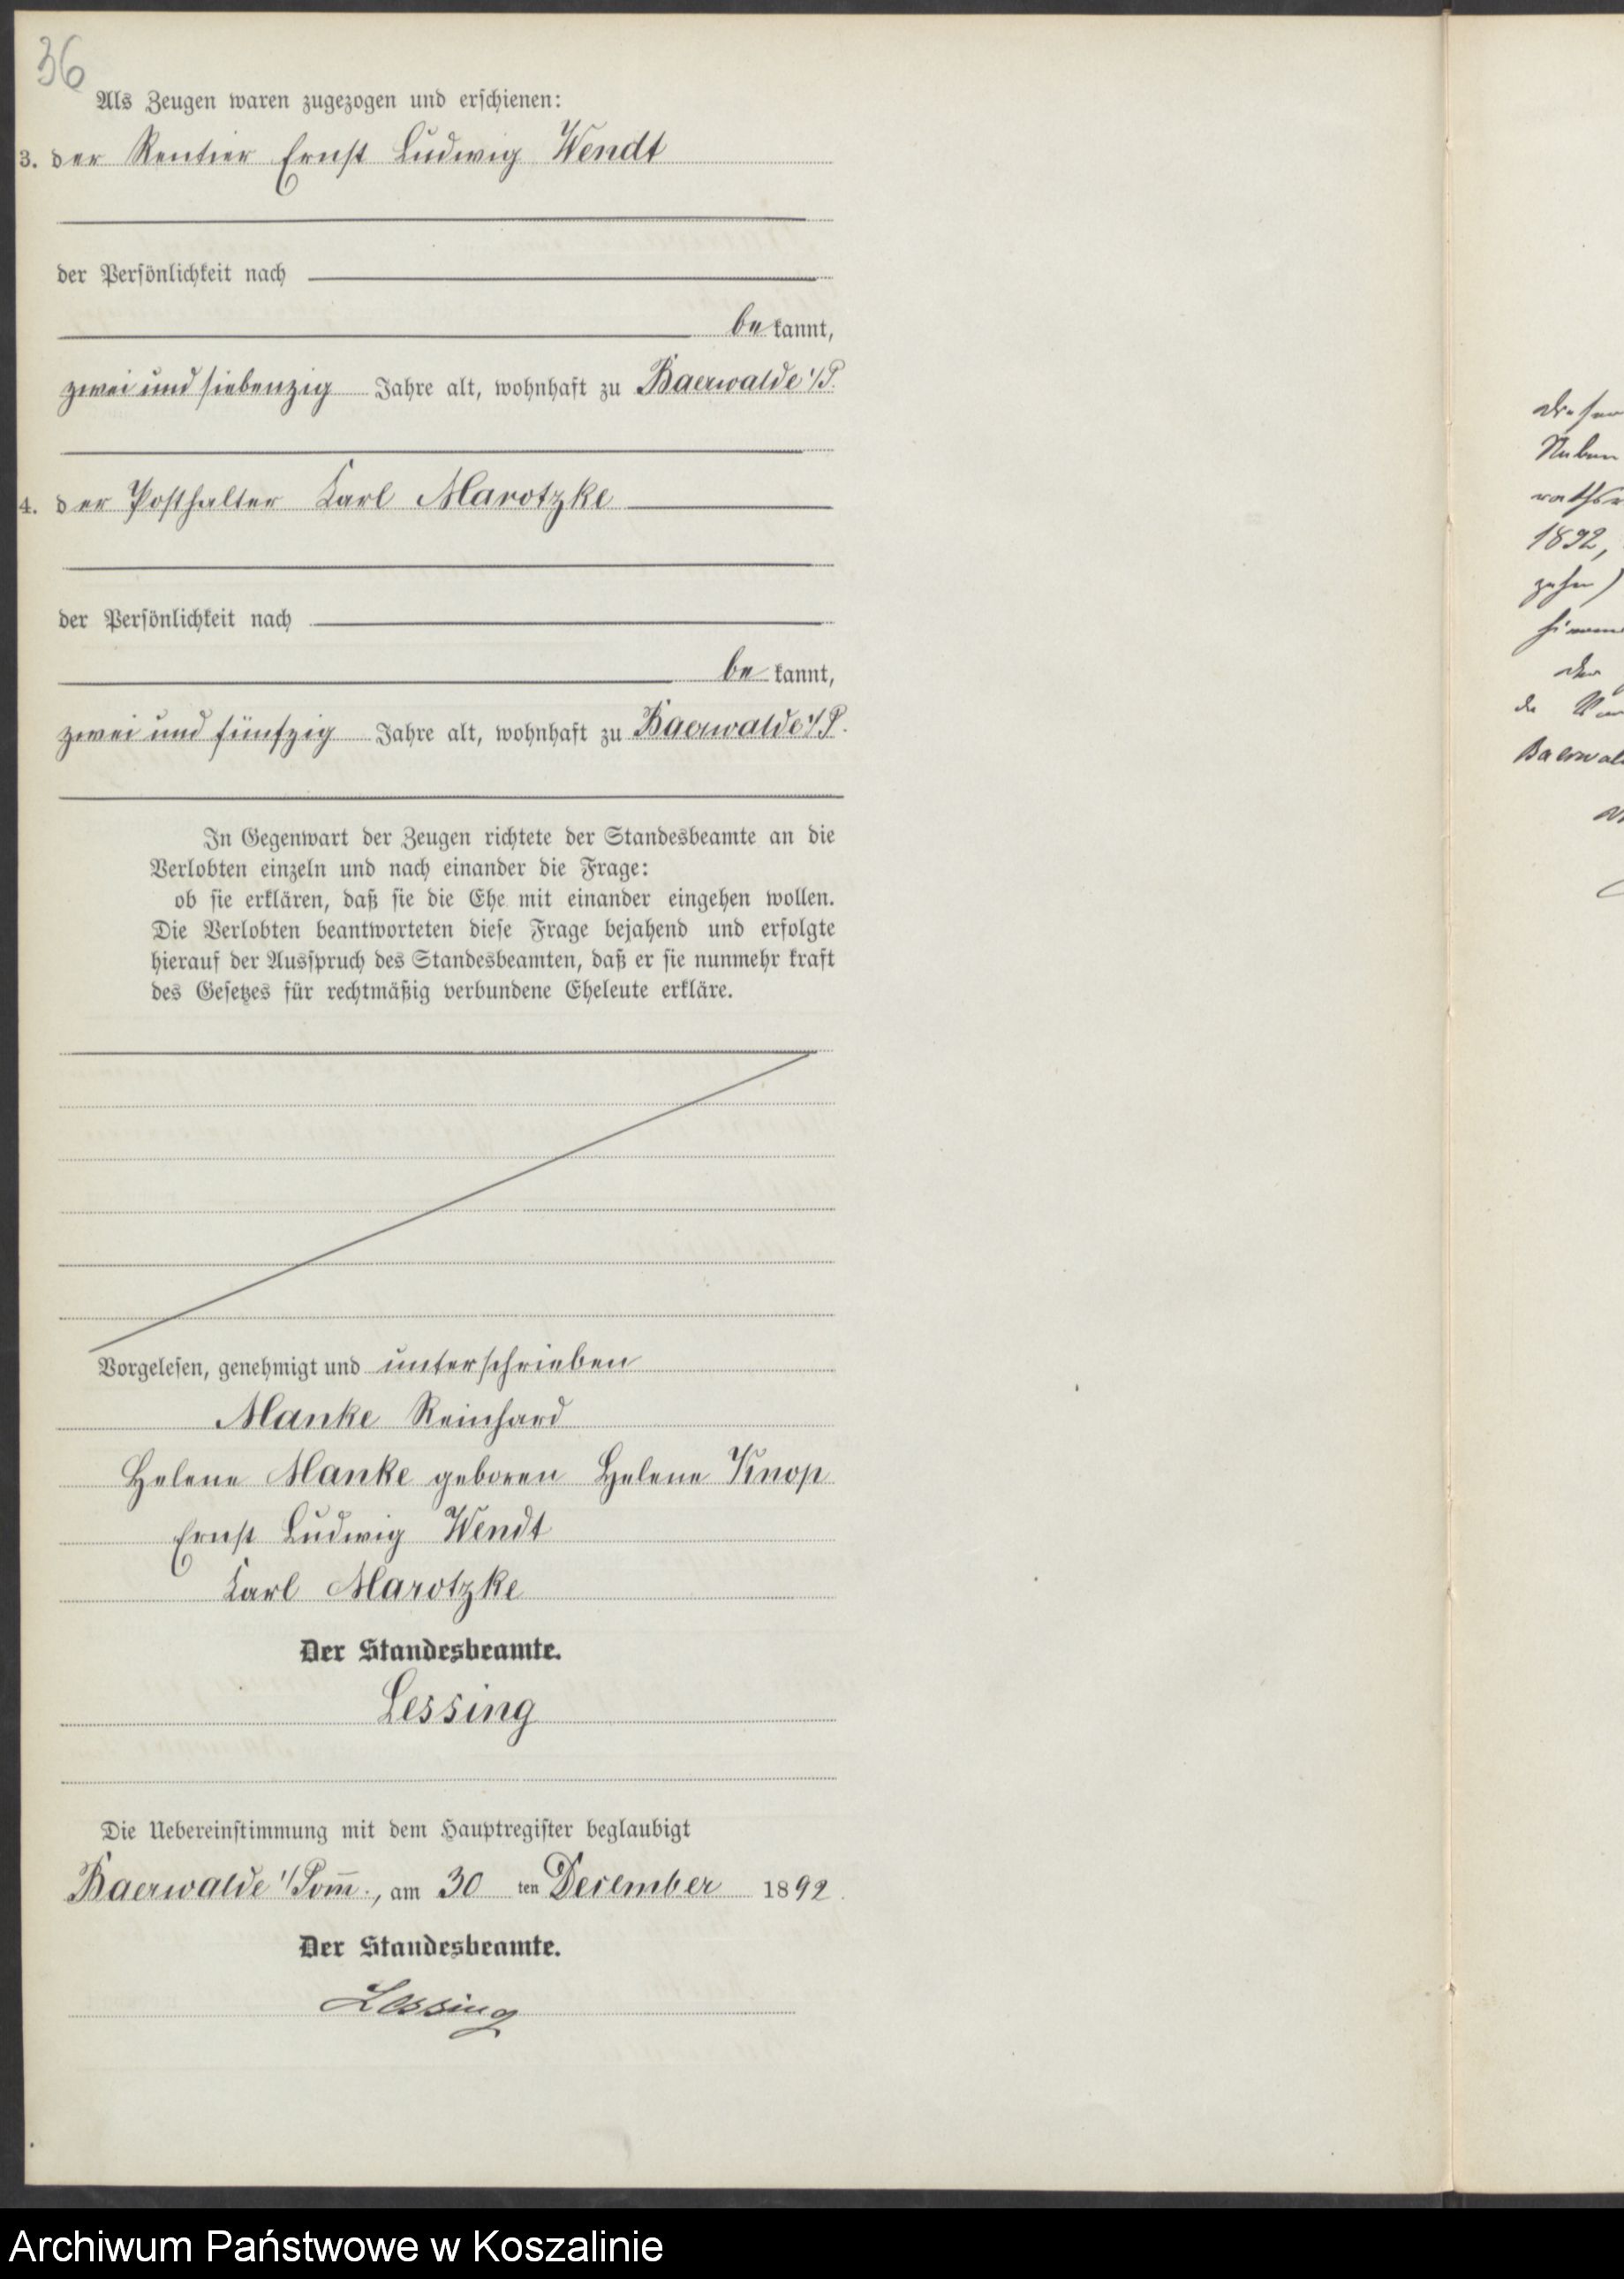 36
Als Zeugen waren zugezogen und erschienen:
3. der Rentier Ernst Ludwig Wendt
der Persönlichkeit nach
be kannt,
zwei und siebenzig Jahre alt, wohnhaft zu Baerwalde i/P.
4. der Posthalter Karl Marotzke
der Persönlichkeit nach
be kannt,
zwei und fünfzig Jahre alt, wohnhaft zu Baerwalde i/P.
In Gegenwart der Zeugen richtete der Standesbeamte an die
Verlobten einzeln und nach einander die Frage:
ob sie erklären, daß sie die Ehe mit einander eingehen wollen.
Die Verlobten beantworteten diese Frage bejahend und erfolgte
hierauf der Ausspruch des Standesbeamten, daß er sie nunmehr kraft
des Gesetzes für rechtmäßig verbundene Eheleute erkläre.
Vorgelesen, genehmigt und unterschrieben
Manke Reinhard
Helene Manke geboren Helene Knop
Ernst Ludwig Wendt
Karl Marotzke
Der Standesbeamte.
Lessing
Die Uebereinstimmung mit dem Hauptregister beglaubigt
Baerwalde i/Pom̄., am 30 ten December 1892.
Der Standesbeamte.
Lessing
Neben
1892,
der
Baerwal
Archiwum Państwowe w Koszalinie